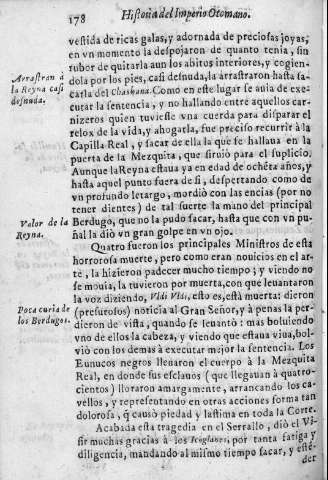 178 Historia del Imperio Otomano.
vestida de ricas galas, y adornada de preciosas joyas;
en vn momento la despojaron de quanto tenia, sin
rubor de quitarla aun los abitos interiores, y cogien-
dola por los pies, casi desnuda, la arrastraron hasta sa-
carla del Chaskana. Como en este lugar se auia de exe-
cutar la sentencia, y no hallando entre aquellos car-
nizeros quien tuviesse vna cuerda para disparar el
relox de la vida, y ahogarla, fue preciso recurrir à la
Capilla Real, y sacar de ella la que se hallaua en la
puerta de la Mezquita, que siruiò para el suplicio.
Aunque la Reyna estaua ya en edad de ochẽta años, y
hasta aquel punto fuera de si, despertando como de
vn profundo letargo, mordiò con las encias (por no
tener dientes) de tal suerte la mano del principal
Berdugo, que no la pudo sacar, hasta que con vn pu-
ñal la diò vn gran golpe en vn ojo.
Quatro fueron los principales Ministros de esta
horrorosa muerte, pero como eran nouicios en el ar-
te, la hizieron padecer mucho tiempo; y viendo no
se mouia, la tuvieron por muerta, con que leuantaron
la voz diziendo, Vldi Vldi, esto es, està muerta: dieron
(presurosos) noticia al Gran Señor, y à penas la per-
dieron de vista, quando se leuantò: mas boluiendo
vno de ellos la cabeza, y viendo que estaua viua, bol-
viò con los demàs à executar mejor la sentencia. Los
Eunucos negros llenaron el cuerpo à la Mezquita
Real, en donde sus esclauos (que llegauan à quatro-
cientos) lloraron amargamente, arrancando los ca-
vellos, y representando en otras acciones forma tan
dolorosa, q̃ causò piedad y lastima en toda la Corte.
Acabada esta tragedia en el Serrallo, diò el Vi-
sir muchas gracias à los Icoglanes, por tanta fatiga y
diligencia, mandando al mismo tiempo sacar, y esté-
der
Arrastran à
la Reyna casi
desnuda.
Valor de la
Reyna.
Poca curia de
los Berdugos.